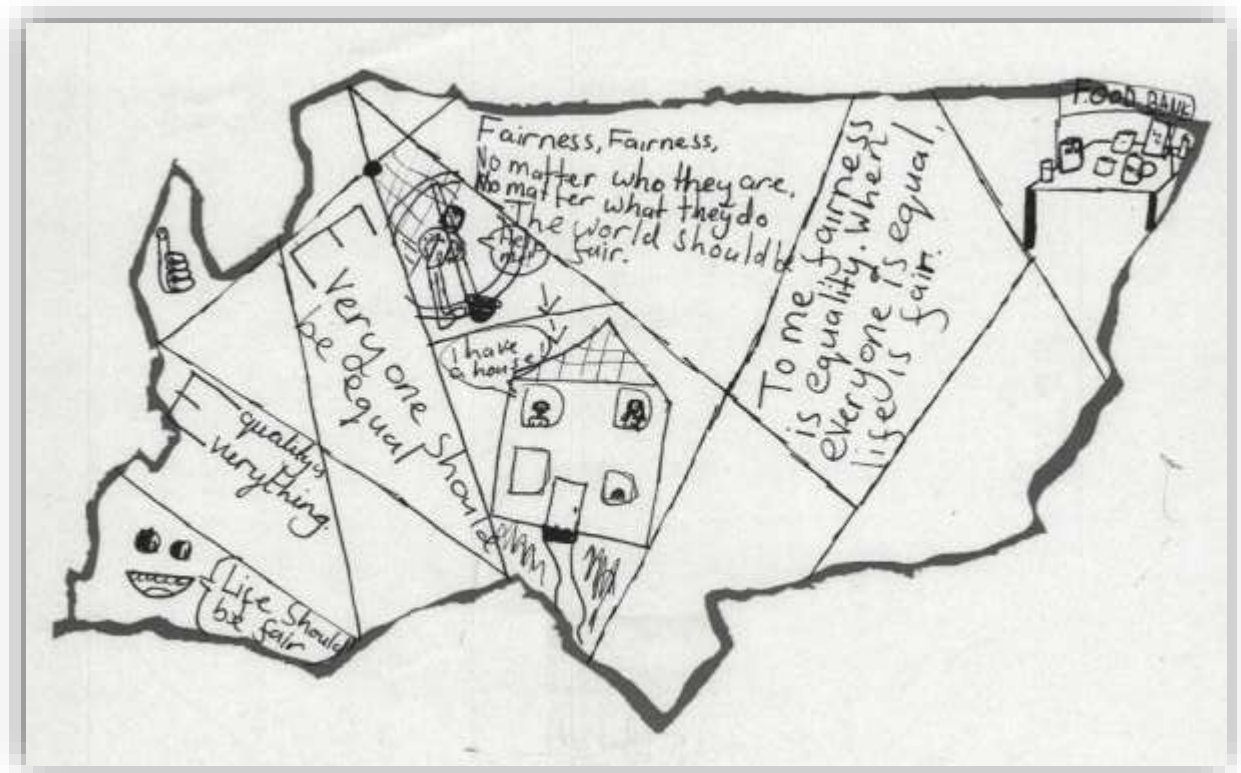 FOOD BANK
Fairness, Fairness,
No matter who they are,
No matter what they do
The world should be
fair.
Help
me!
To me fairness
is equality. When
everyone is equal,
life is fair.
Everyone should
be equal
I have
a house!
Equality is
Everything.
Life Should
be fair